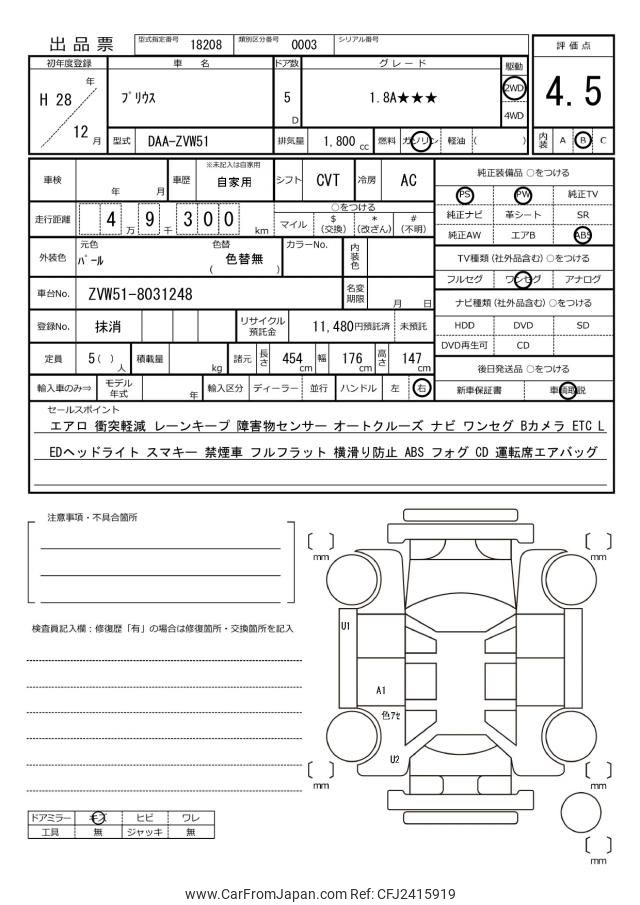 出品票
型式指定番号 18208 類別区分番号 0003 シリアル番号
評価点
4.5
内装 A B C
初年度登録 車名 ドア数 グレード 駆動
H 28 年 12 月
プリウス
5 D
1.8A★★★
2WD
4WD
型式 DAA-ZVW51 排気量 1,800 cc 燃料 ガソリン 軽油 ( )
車検 年 月 車歴 ※未記入は自家用 自家用 シフト CVT 冷房 AC
走行距離 4 万 9 千 3 0 0 km
○をつける
マイル $ (交換) * (改ざん) # (不明)
外装色 元色 パール 色替 ( 色替無 ) カラーNo. 内装色
車台No. ZVW51-8031248 名変期限 月 日
登録No. 抹消 リサイクル預託金 11,480円預託済 未預託
定員 5( ) 人 積載量 kg 諸元 長さ 454 cm 幅 176 cm 高さ 147 cm
輸入車のみ⇒ モデル年式 年 輸入区分 ディーラー 並行 ハンドル 左 右
純正装備品 ○をつける
PS PW 純正TV
純正ナビ 革シート SR
純正AW エアB ABS
TV種類 (社外品含む) ○をつける
フルセグ ワンセグ アナログ
ナビ種類 (社外品含む) ○をつける
HDD DVD SD
DVD再生可 CD
後日発送品 ○をつける
新車保証書 車輌取説
セールスポイント
エアロ 衝突軽減 レーンキープ 障害物センサー オートクルーズ ナビ ワンセグ Bカメラ ETC L
EDヘッドライト スマキー 禁煙車 フルフラット 横滑り防止 ABS フォグ CD 運転席エアバッグ
注意事項・不具合箇所
検査員記入欄：修復歴「有」の場合は修復箇所・交換箇所を記入
mm
mm
U1
A1
色アセ
U2
mm
mm
mm
ドアミラー キズ ヒビ ワレ
工具 無 ジャッキ 無
www.CarFromJapan.com Ref: CFJ2415919